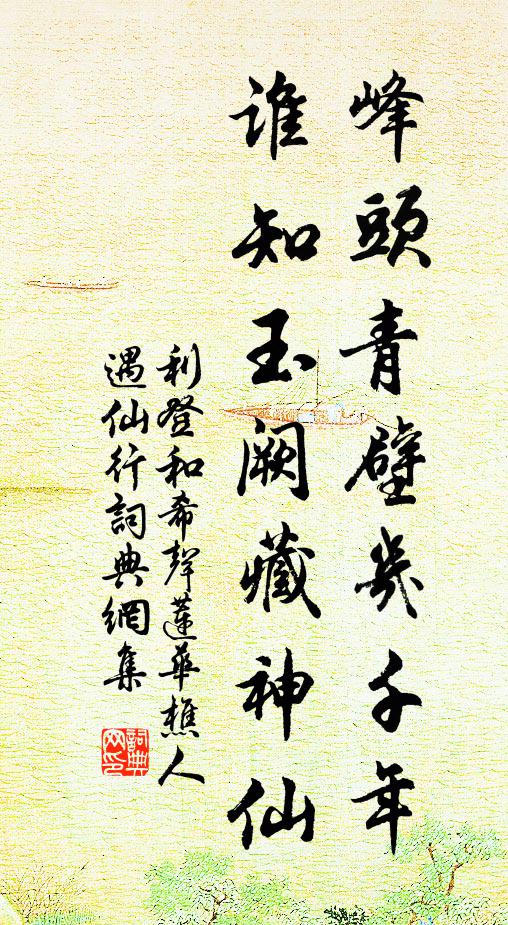 峰頭青壁幾千年
誰知玉闕藏神仙
利登和希聲蓮華樵人
遇仙行詞典網集
詞典网印